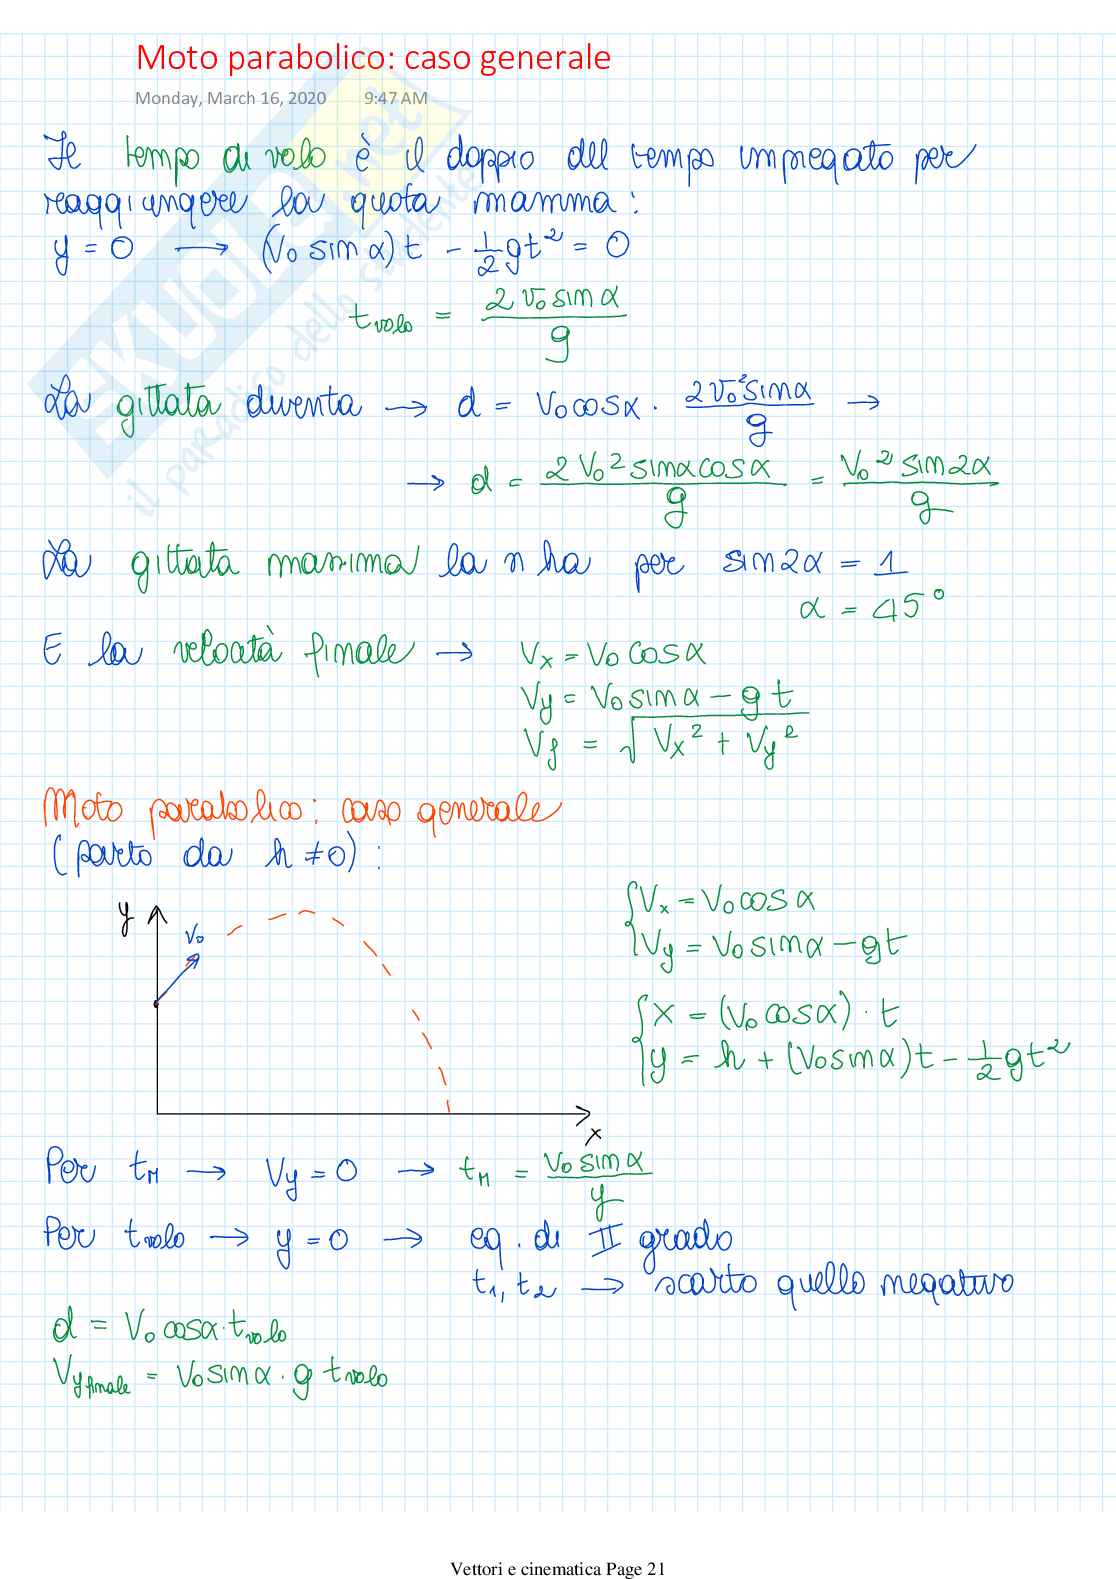 Moto parabolico: caso generale
Monday, March 16, 2020 9:47 AM
Il tempo di volo è il doppio del tempo impiegato per
raggiungere la quota mamma:
y = 0 → (V₀ sin α) t - 1/2 gt² = 0
t volo = 2 V₀ sin α / g
La gittata diventa → d = V₀ cos α · 2 V₀² sin α / g →
→ d = 2 V₀² sin α cos α / g = V₀² sin 2α / g
La gittata massima la si ha per sin 2α = 1
α = 45°
E la velocità finale → Vx = V₀ cos α
Vy = V₀ sin α - g t
Vf = √Vx² + Vy²
Moto parabolico: caso generale
(parto da h ≠ 0):
y
V₀
{Vx = V₀ cos α
Vy = V₀ sin α - gt
{x = (V₀ cos α) · t
y = h + (V₀ sin α) t - 1/2 gt²
x
Per tM → Vy = 0 → tM = V₀ sin α / y
Per t volo → y = 0 → eq. di II grado
t₁, t₂ → scarto quello negativo
d = V₀ cos α · t volo
Vy finale = V₀ sin α · g t volo
SKUOLA.net
il paradiso dello studente
Vettori e cinematica Page 21